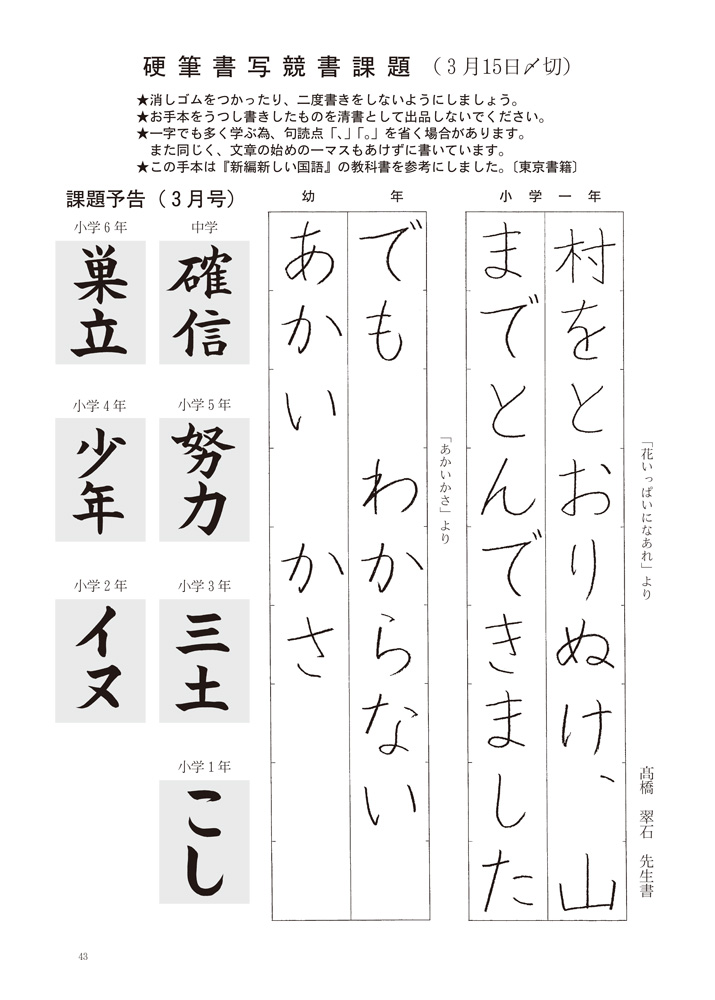 硬筆書写競書課題（3月15日〆切）
★消しゴムをつかったり、二度書きをしないようにしましょう。
★お手本をうつし書きしたものを清書として出品しないでください。
★一字でも多く学ぶ為、句読点「、」「。」を省く場合があります。
また同じく、文章の始めの一マスもあけずに書いています。
★この手本は『新編新しい国語』の教科書を参考にしました。〔東京書籍〕
小学一年
村をとおりぬけ、山
までとんできました
「花いっぱいになあれ」より
髙橋 翠石 先生書
幼年
でも わからない
あかい かさ
「あかいかさ」より
課題予告（3月号）
中学
確信
小学6年
巣立
小学5年
努力
小学4年
少年
小学3年
三土
小学2年
イヌ
小学1年
こし
43